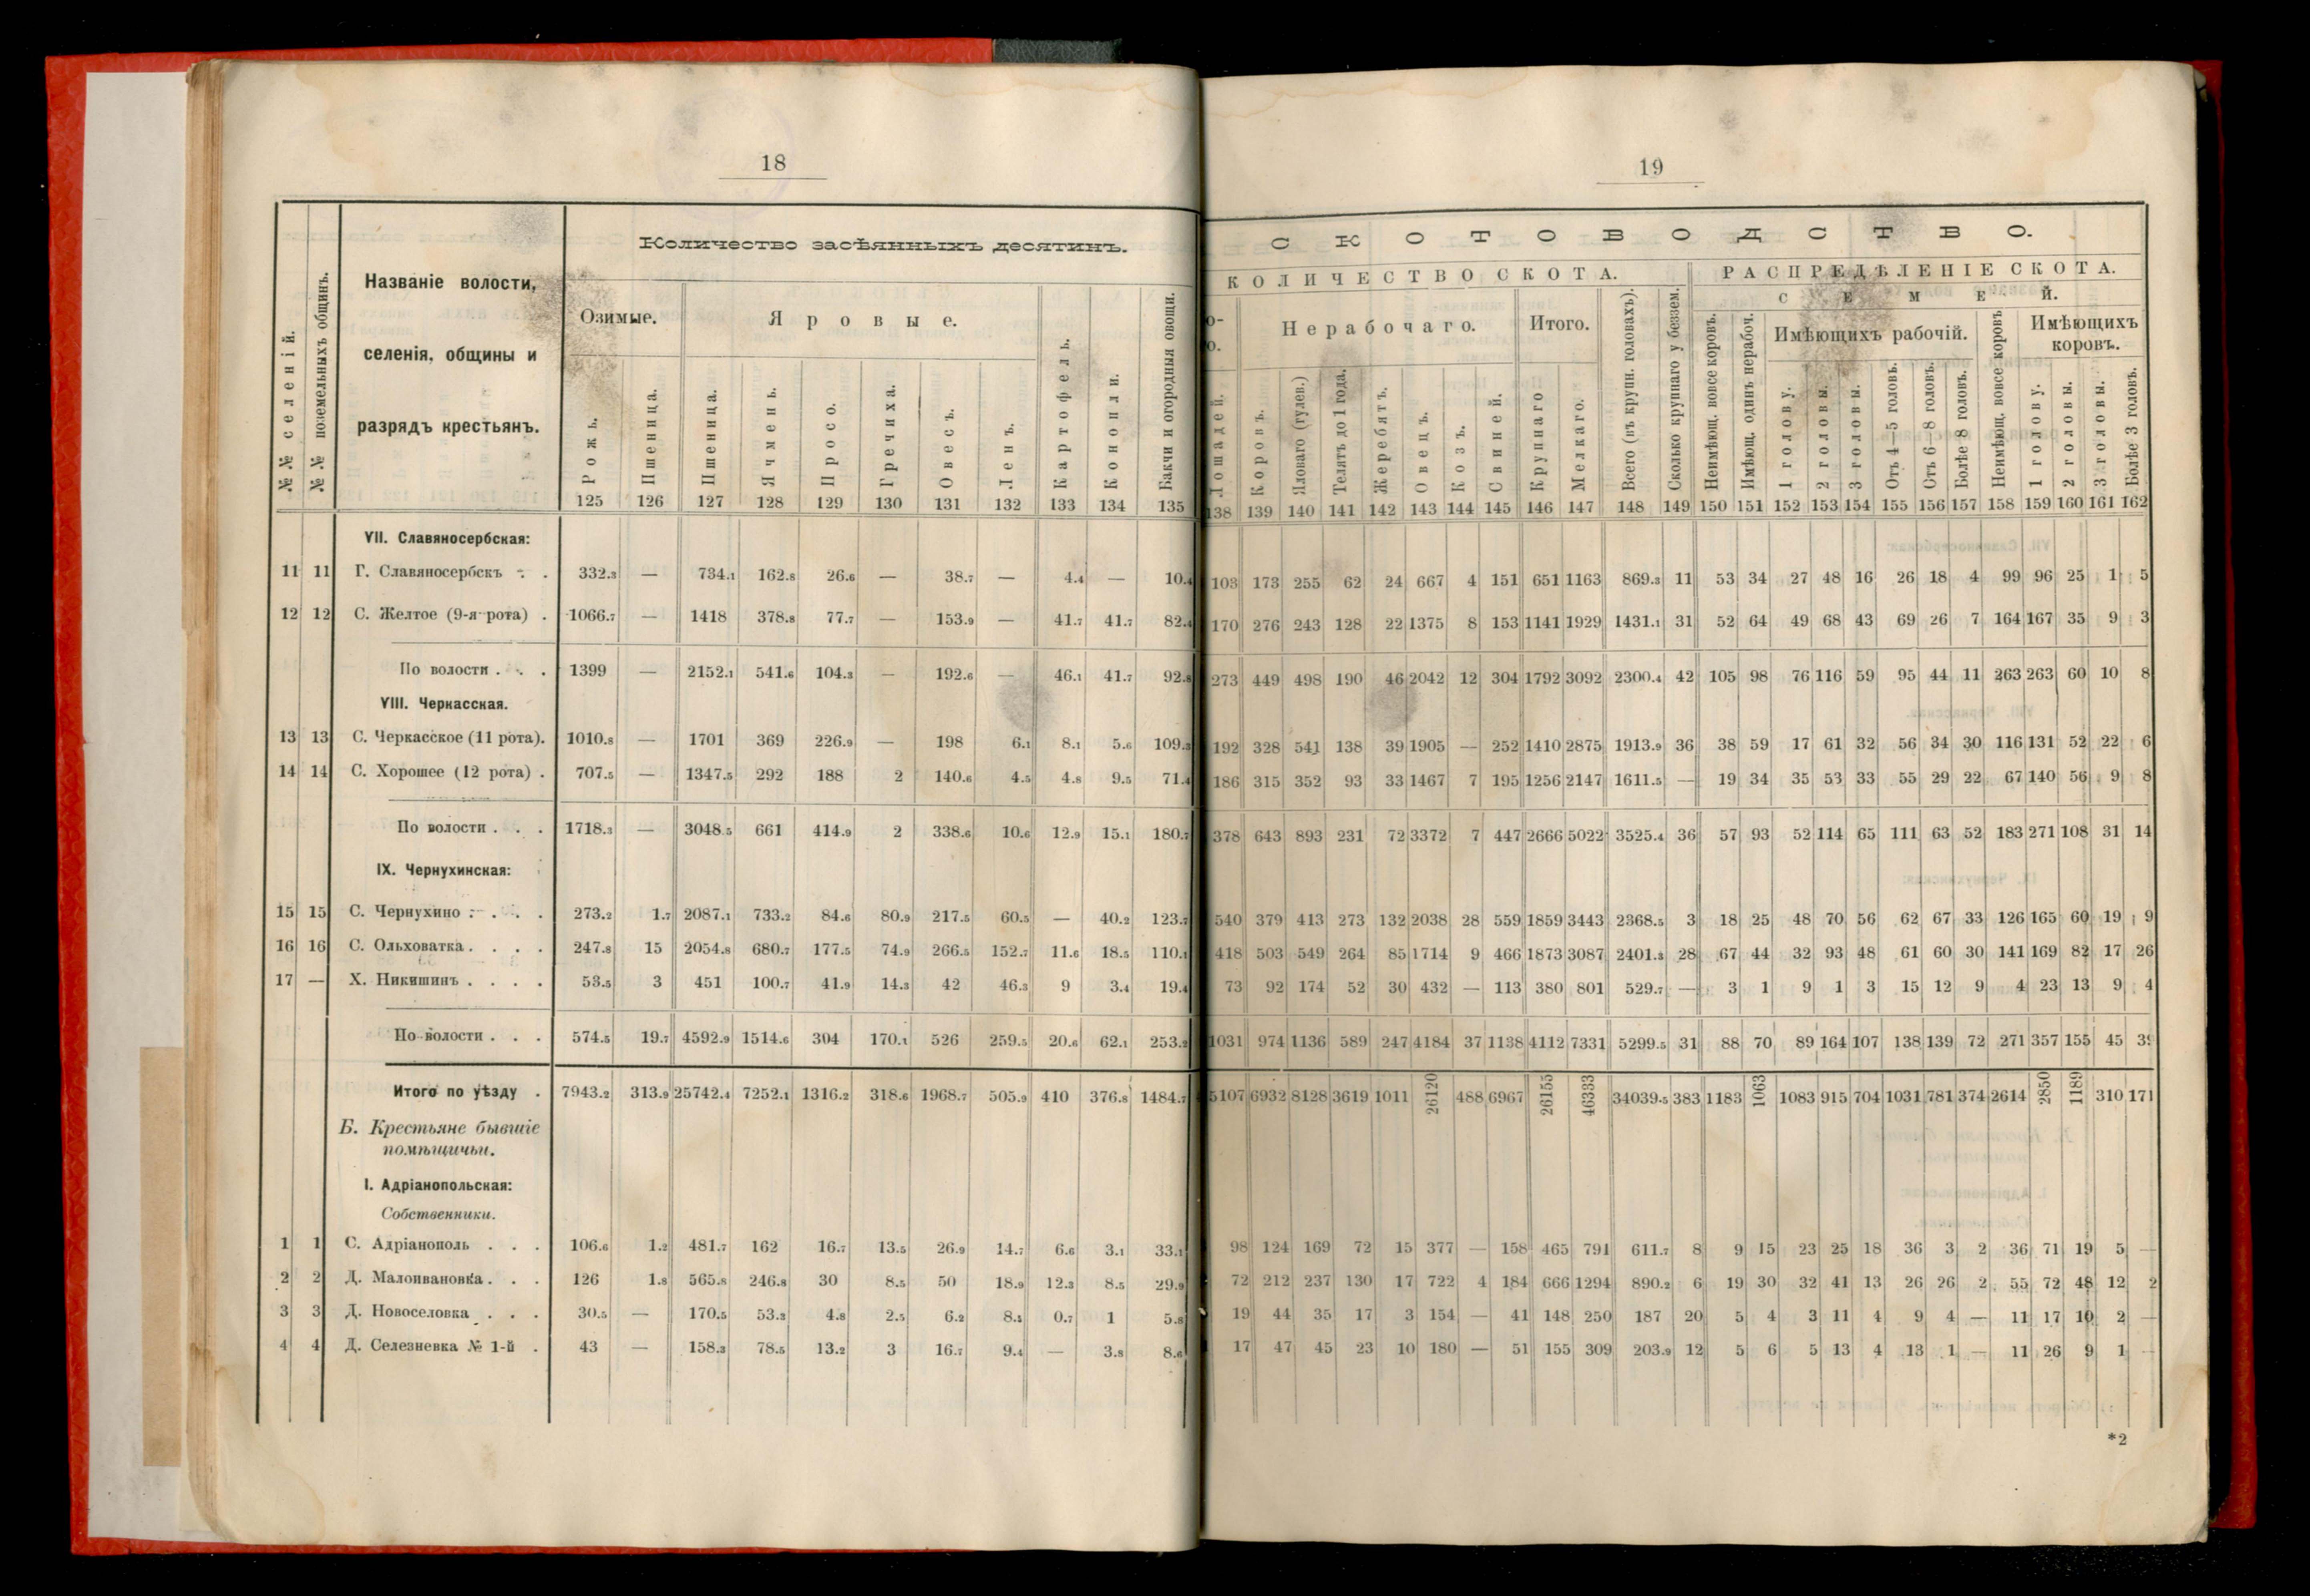 18
№№ селеній.
№№ поземельныхъ общинъ.
Названіе волости, селенія, общины и разрядъ крестьянъ.
Количество засѣянныхъ десятинъ.
Озимые. Яровые.
Рожь. Пшеница. Пшеница. Ячмень. Просо. Гречиха. Овесъ. Ленъ. Картофель. Конопли. Бакчи и огородныя овощи.
125 126 127 128 129 130 131 132 133 134 135
VII. Славяносербская:
11 11 Г. Славяносербскъ . . 332.3 — 734.1 162.8 26.6 — 38.7 — 4.4 — 10.4
12 12 С. Желтое (9-я рота) . 1066.7 — 1418 378.8 77.7 — 153.9 — 41.7 41.7 82.4
По волости . . . 1399 — 2152.1 541.6 104.3 — 192.6 — 46.1 41.7 92.8
VIII. Черкасская.
13 13 С. Черкасское (11 рота). 1010.8 — 1701 369 226.9 — 198 6.1 8.1 5.6 109.3
14 14 С. Хорошее (12 рота) . 707.5 — 1347.5 292 188 2 140.6 4.5 4.8 9.5 71.4
По волости . . . 1718.3 — 3048.5 661 414.9 2 338.6 10.6 12.9 15.1 180.7
IX. Чернухинская:
15 15 С. Чернухино . . . . 273.2 1.7 2087.1 733.2 84.6 80.9 217.5 60.5 — 40.2 123.7
16 16 С. Ольховатка . . . . 247.8 15 2054.8 680.7 177.5 74.9 266.5 152.7 11.6 18.5 110.1
17 — Х. Никишинъ . . . . 53.5 3 451 100.7 41.9 14.3 42 46.3 9 3.4 19.4
По волости . . . 574.5 19.7 4592.9 1514.6 304 170.1 526 259.5 20.6 62.1 253.2
Итого по уѣзду . 7943.2 313.9 25742.4 7252.1 1316.2 318.6 1968.7 505.9 410 376.8 1484.7
Б. Крестьяне бывшіе
помѣщичьи.
I. Адріанопольская:
Собственники.
1 1 С. Адріанополь . . . 106.6 1.2 481.7 162 16.7 13.5 26.9 14.7 6.6 3.1 33.1
2 2 Д. Малоивановка . . . 126 1.8 565.8 246.8 30 8.5 50 18.9 12.3 8.5 29.9
3 3 Д. Новоселовка . . . 30.5 — 170.5 53.3 4.8 2.5 6.2 8.1 0.7 1 5.8
4 4 Д. Селезневка № 1-й . 43 — 158.3 78.5 13.2 3 16.7 9.4 — 3.8 8.6
19
СКОТОВОДСТВО.
КОЛИЧЕСТВО СКОТА. РАСПРЕДѢЛЕНІЕ СКОТА.
СЕМЕЙ.
Нерабочаго. Итого. Имѣющихъ рабочій. Имѣющихъ коровъ.
Лошадей. Коровъ. Яловаго (гулев.) Телятъ до 1 года. Жеребятъ. Овецъ. Козъ. Свиней. Крупнаго Мелкаго. Всего (въ крупн. головахъ). Сколько крупнаго у беззем. Неимѣющ. вовсе коровъ. Имѣющ. одинъ нерабоч. 1 голову. 2 головы. 3 головы. Отъ 4—5 головъ. Отъ 6—8 головъ. Болѣе 8 головъ. Неимѣющ. вовсе коровъ 1 голову. 2 головы. 3 головы. Болѣе 3 головъ.
138 139 140 141 142 143 144 145 146 147 148 149 150 151 152 153 154 155 156 157 158 159 160 161 162
103 173 255 62 24 667 4 151 651 1163 869.3 11 53 34 27 48 16 26 18 4 99 96 25 1 5
170 276 243 128 22 1375 8 153 1141 1929 1431.1 31 52 64 49 68 43 69 26 7 164 167 35 9 3
273 449 498 190 46 2042 12 304 1792 3092 2300.4 42 105 98 76 116 59 95 44 11 263 263 60 10 8
192 328 541 138 39 1905 — 252 1410 2875 1913.9 36 38 59 17 61 32 56 34 30 116 131 52 22 6
186 315 352 93 33 1467 7 195 1256 2147 1611.5 — 19 34 35 53 33 55 29 22 67 140 56 9 8
378 643 893 231 72 3372 7 447 2666 5022 3525.4 36 57 93 52 114 65 111 63 52 183 271 108 31 14
540 379 413 273 132 2038 28 559 1859 3443 2368.5 3 18 25 48 70 56 62 67 33 126 165 60 19 9
418 503 549 264 85 1714 9 466 1873 3087 2401.3 28 67 44 32 93 48 61 60 30 141 169 82 17 26
73 92 174 52 30 432 — 113 380 801 529.7 — 3 1 9 1 3 15 12 9 4 23 13 9 4
1031 974 1136 589 247 4184 37 1138 4112 7331 5299.5 31 88 70 89 164 107 138 139 72 271 357 155 45 39
5107 6932 8128 3619 1011 26120 488 6967 26155 46333 34039.5 383 1183 1063 1083 915 704 1031 781 374 2614 2850 1189 310 171
98 124 169 72 15 377 — 158 465 791 611.7 8 9 15 23 25 18 36 3 2 36 71 19 5 —
72 212 237 130 17 722 4 184 666 1294 890.2 6 19 30 32 41 13 26 26 2 55 72 48 12 2
19 44 35 17 3 154 — 41 148 250 187 20 5 4 3 11 4 9 4 — 11 17 10 2 —
17 47 45 23 10 180 — 51 155 309 203.9 12 5 6 5 13 4 13 1 — 11 26 9 1 —
*2